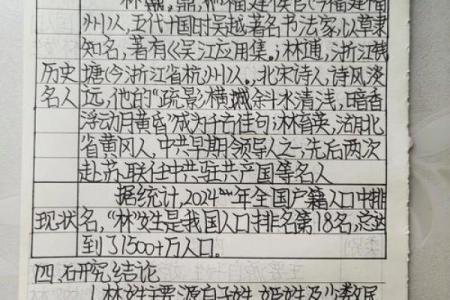 林鼐,鼎,神福建侯官(今福建福
州)人,五代十国时吴越著名书法家,以草隶
知名,著有《吴江应用集》;林逋,浙江钱
历史 塘(今浙江省杭州)人。北宋诗人,诗风淡
名人 远,他的"疏影横斜水清浅,暗香
浮动月黄昏"成为千古佳句;林育英,湖北
省黄冈人,中共早期领导人之一,先后两次
赴苏联任中共驻共产国等名人
据统计,2024年全国户籍人口中排
现状 名,"林"姓是我国人口排名第18名,总达
到了1500+万人口。
四.研究结论
1.林姓主要源自子姓、姬姓及少数民